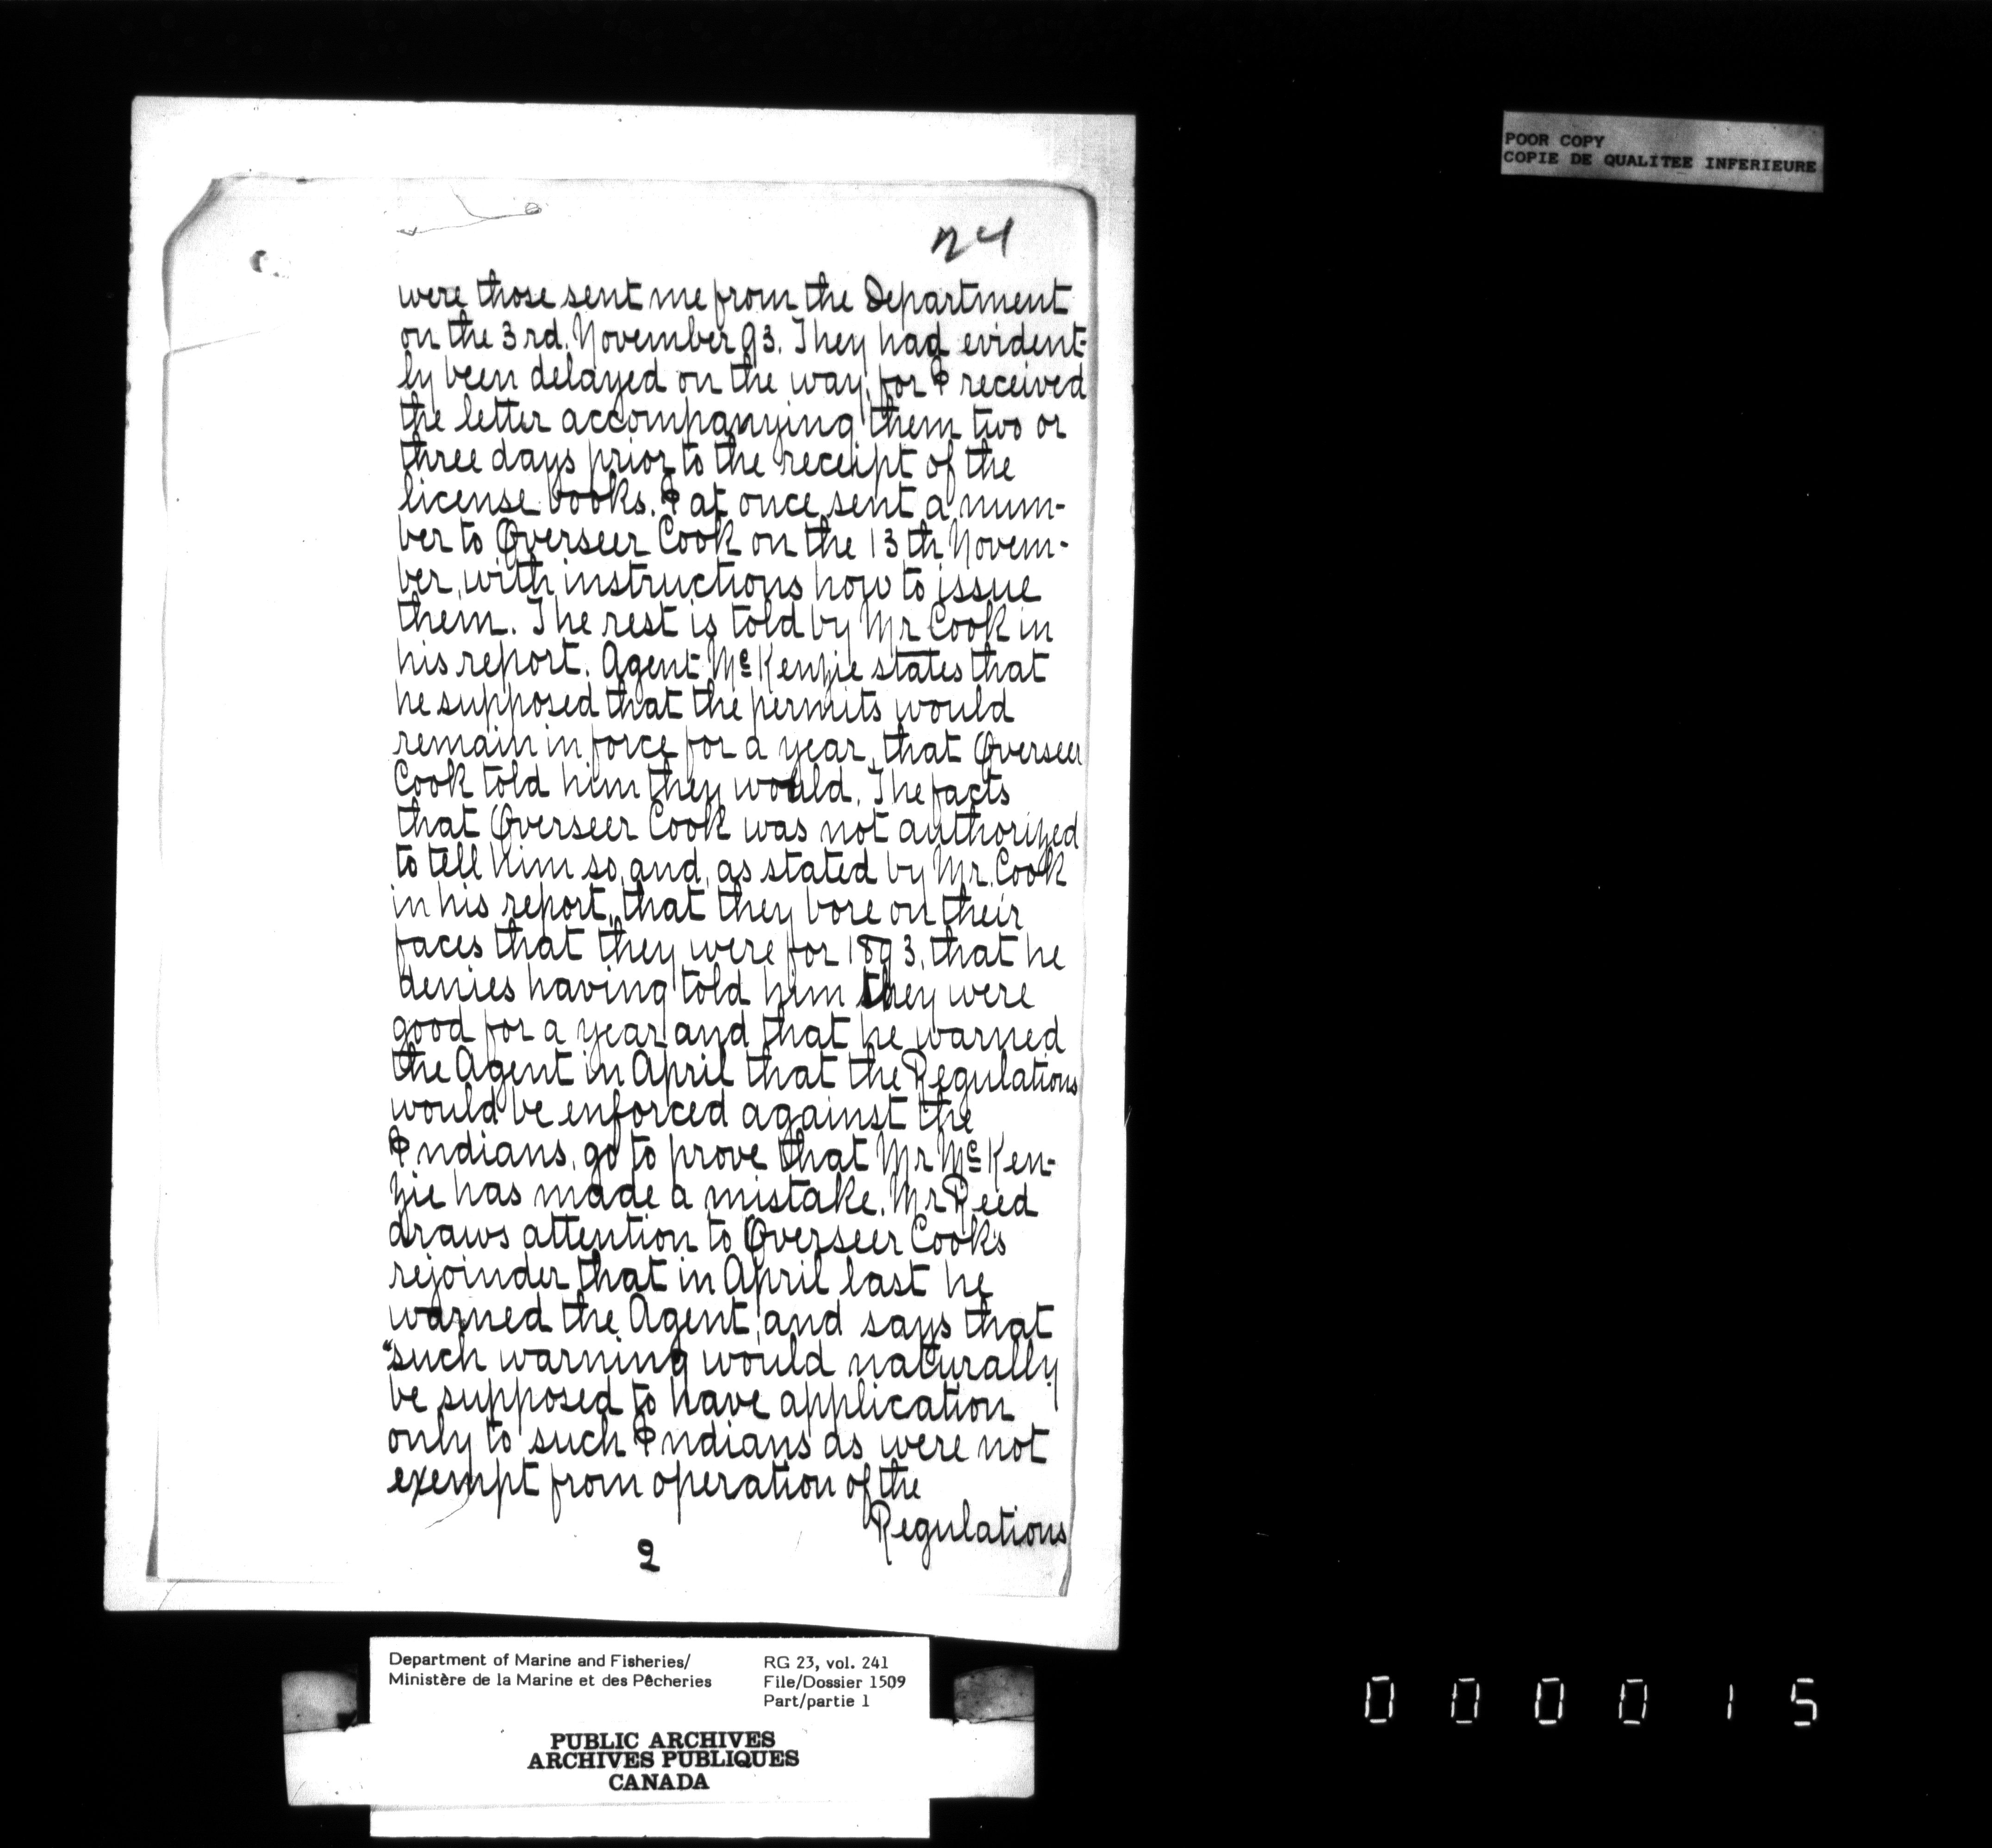 POOR COPY
COPIE DE QUALITEE INFERIEURE
24
were those sent me from the Department
on the 3rd. November 93. They had evident-
ly been delayed on the way, for I received
the letter accompanying them two or
three days prior to the receipt of the
license books. I at once sent a num-
ber to Overseer Cook on the 13th Novem-
ber, with instructions how to issue
them. The rest is told by Mr Cook in
his report. Agent McKenzie states that
he supposed that the permits would
remain in force for a year, that Overseer
Cook told him they would. The facts
that Overseer Cook was not authorized
to tell him so, and, as stated by Mr. Cook
in his report, that they bore on their
faces that they were for 1893, that he
denies having told him they were
good for a year and that he warned
the Agent in April that the Regulations
would be enforced against the
Indians, go to prove that Mr McKen-
zie has made a mistake. Mr Reed
draws attention to Overseer Cook's
rejoinder that in April last he
warned the Agent, and says that
"such warning would naturally
be supposed to have application
only to such Indians as were not
exempt from operation of the
Regulations
2
Department of Marine and Fisheries/
Ministère de la Marine et des Pêcheries
RG 23, vol. 241
File/Dossier 1509
Part/partie 1
PUBLIC ARCHIVES
ARCHIVES PUBLIQUES
CANADA
000015